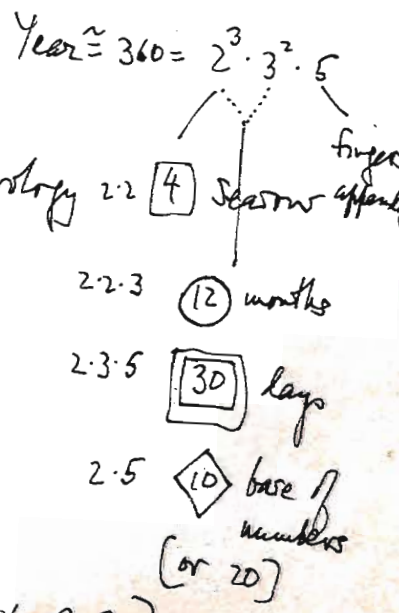 Year ≅ 360 = 2³ · 3² · 5
finge
ology 2·2 4 Seasons append
2·2·3 12 months
2·3·5 30 days
2·5 10 base of
numbers
(or 20)